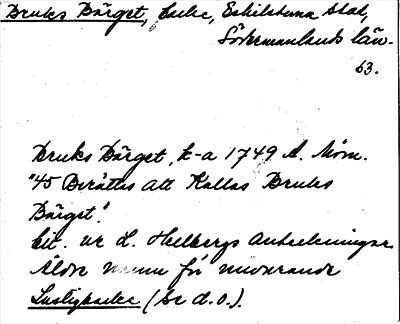 Bruks Bärget, backe, Eskilstuna stad,
Södermanlands län.
63.
Bruks Bärget, k-a 1749 A. Möm.
"45 Berättas att Kallas Bruks
Bärget".
Cit. ur L. Hellbergs Anteckningar
Äldre namn på nuvarande
Lustigbacke (se d.o.).